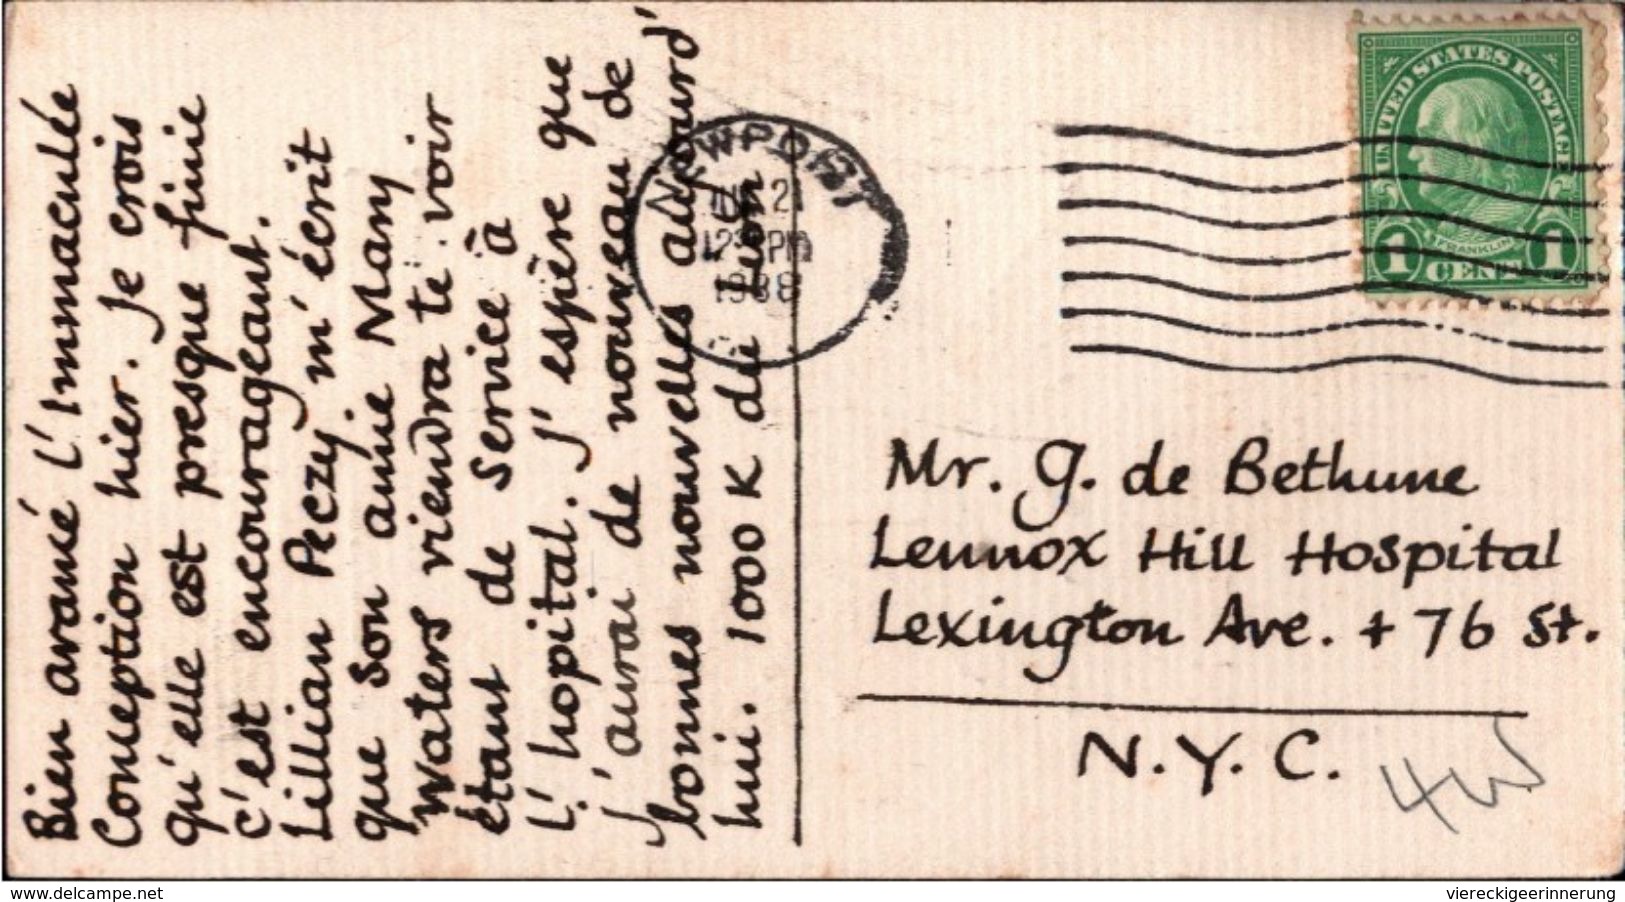 Bien avancé l'Immaculée
Conception hier. Je crois
qu'elle est presque finie
c'est encourageant.
Lillian Peczy m'écrit
que son amie Many
Waters viendra te voir
étant de service à
l'hopital. J'espère que
j'aurai de nouveau de
bonnes nouvelles aujourd'
hui. 1000 K du Lion
NEWPORT
21
12 PM
1938
UNITED STATES POSTAGE
FRANKLIN
1 CENT 1
Mr. G. de Bethune
Lennox Hill Hospital
Lexington Ave. + 76 St.
N.Y.C.
www.delcampe.net
viereckigeerinnerung